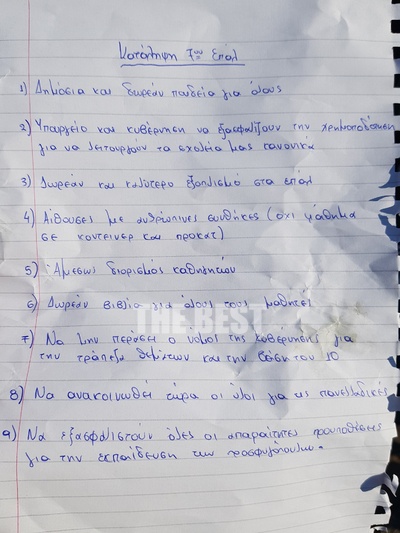 Κατάληψη 1ου Επαλ
1) Δημόσια και δωρεάν παιδεία για όλους
2) Υπουργείο και κυβέρνηση να εξασφαλίζουν την χρηματοδότηση
για να λειτουργούν τα σχολεία μας κανονικά
3) Δωρεάν και καλύτερο εξοπλισμό στα επάλ
4) Αίθουσες με ανθρώπινες συνθήκες (όχι μάθημα
σε κοντεινερ και προκατ)
5) Άμεσως διορισμός καθηγητών
6) Δωρεάν βιβλία για όλους τους μαθητές
THE BEST
7) Να μην περάσει ο νόμος της κυβέρνησης για
την τράπεζα θεμάτων και την βάση του 10
8) Να ανακοινωθεί τώρα οι ύλοι για τις πανελλαδικές
9) Να εξασφαλιστούν όλες οι απαραίτητες προυποθέσεις
για την εκπαίδευση των προσφυγόπουλων.